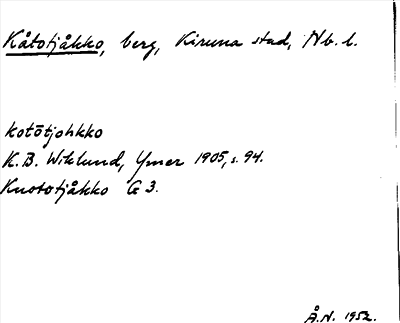 Kåtotjåkko, berg, Kiruna stad, Nb. l.
kotōtjohkko
K.B. Wiklund, Ymer 1905, s. 94.
Kuototjåkko G 3.
Å.N. 1952.